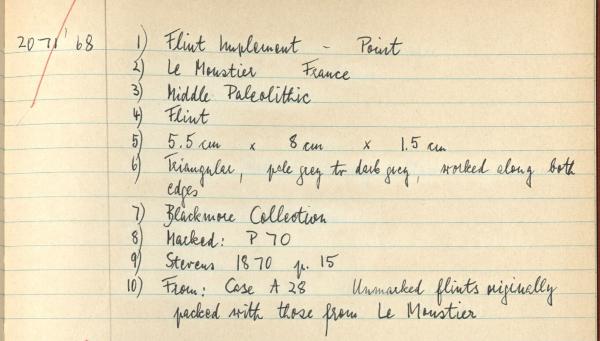 2071'68 1) Flint Implement - Point
2) Le Moustier France
3) Middle Paleolithic
4) Flint
5) 5.5 cm x 8 cm x 1.5 cm
6) Triangular, pale grey to dark grey, worked along both
edges
7) Blackmore Collection
8) Marked: P 70
9) Stevens 1870 p. 15
10) From: Case A 28 Unmarked flints originally
packed with those from Le Moustier